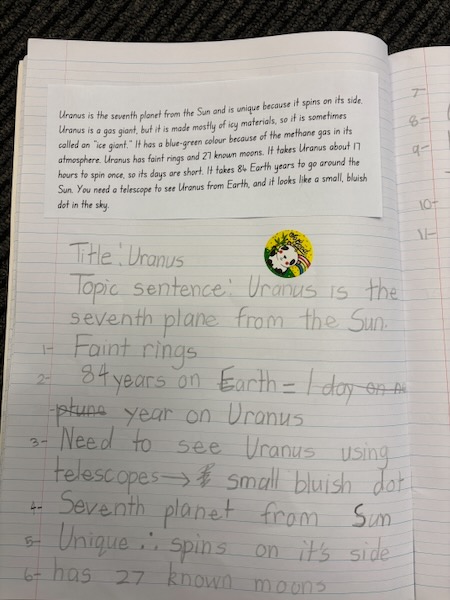 Uranus is the seventh planet from the Sun and is unique because it spins on its side.
Uranus is a gas giant, but it is made mostly of icy materials, so it is sometimes
called an "ice giant." It has a blue-green colour because of the methane gas in its
atmosphere. Uranus has faint rings and 27 known moons. It takes Uranus about 17
hours to spin once, so its days are short. It takes 84 Earth years to go around the
Sun. You need a telescope to see Uranus from Earth, and it looks like a small, bluish
dot in the sky.
Title: Uranus
Topic sentence: Uranus is the
seventh plane from the Sun.
1- Faint rings
2- 84 years on Earth = 1 day on ne
ptune year on Uranus
3- Need to see Uranus using
telescopes→ small bluish dot
4- Seventh planet from Sun
5- Unique ∴ spins on it's side
6- has 27 known moons
7-
8-
9-
10-
11-